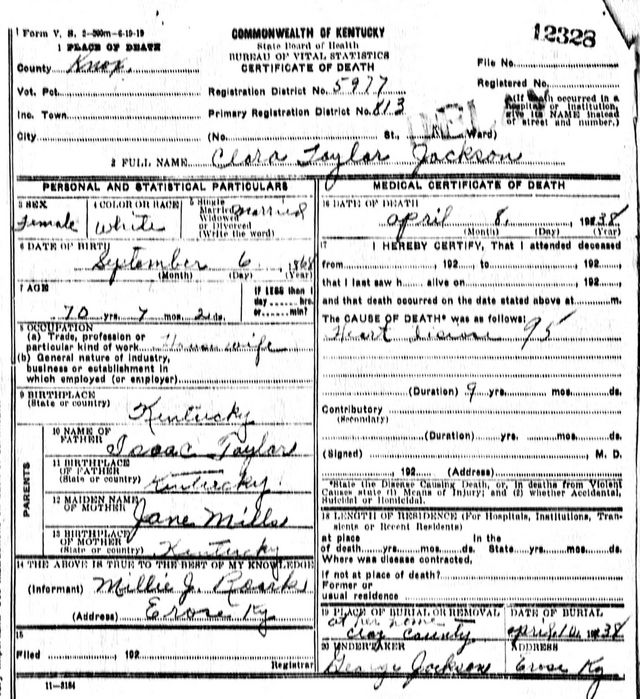 1 Form V. S. 2-300m-6-19-19
12328
COMMONWEALTH OF KENTUCKY
State Board of Health
BUREAU OF VITAL STATISTICS
CERTIFICATE OF DEATH
1 PLACE OF DEATH
County Knox.
Vot. Pct.
Inc. Town
City
Registration District No. 5977
Primary Registration District No. 813
(No. St., Ward)
File No.
Registered No.
(If death occurred in a hospital or institution, give its NAME instead of street and number.)
2 FULL NAME Clara Taylor Jackson
PERSONAL AND STATISTICAL PARTICULARS
3 SEX
Female
4 COLOR OR RACE
White
5 Single
Married
Widowed
or Divorced
(Write the word)
Married
6 DATE OF BIRTH
September 6, 1868
(Month) (Day) (Year)
7 AGE
70 yrs. 7 mos. 2 ds.
If LESS than 1
day hrs.
or min?
8 OCCUPATION
(a) Trade, profession or
particular kind of work House wife
(b) General nature of industry,
business or establishment in
which employed (or employer)
9 BIRTHPLACE
(State or country)
Kentucky
PARENTS
10 NAME OF
FATHER
Isaac Taylor
11 BIRTHPLACE
OF FATHER
(State or country)
Kentucky
12 MAIDEN NAME
OF MOTHER
Jane Mills
13 BIRTHPLACE
OF MOTHER
(State or country)
Kentucky
14 THE ABOVE IS TRUE TO THE BEST OF MY KNOWLEDGE
(Informant) Millie J. Roark
(Address) Erose Ky
15
Filed , 192
Registrar
11-3184
MEDICAL CERTIFICATE OF DEATH
16 DATE OF DEATH
April 8, 1938
(Month) (Day) (Year)
17 I HEREBY CERTIFY, That I attended deceased
from , 192 , to , 192 ,
that I last saw h alive on , 192 ,
and that death occurred on the date stated above at m.
The CAUSE OF DEATH* was as follows:
Heart disease 95
(Duration) 9 yrs. mos. ds.
Contributory
(Secondary)
(Duration) yrs. mos. ds.
(Signed) , M. D.
, 192 (Address)
*State the Disease Causing Death, or, in deaths from Violent
Causes state (1) Means of Injury; and (2) whether Accidental,
Suicidal or Homicidal.
18 LENGTH OF RESIDENCE (For Hospitals, Institutions, Tran-
sients or Recent Residents)
At place In the
of death yrs. mos. ds. State yrs. mos. ds.
Where was disease contracted,
If not at place of death?
Former or
usual residence
19 PLACE OF BURIAL OR REMOVAL
at her home
Clay County
DATE OF BURIAL
April 10, 1938
20 UNDERTAKER
George Jackson
ADDRESS
Erose Ky